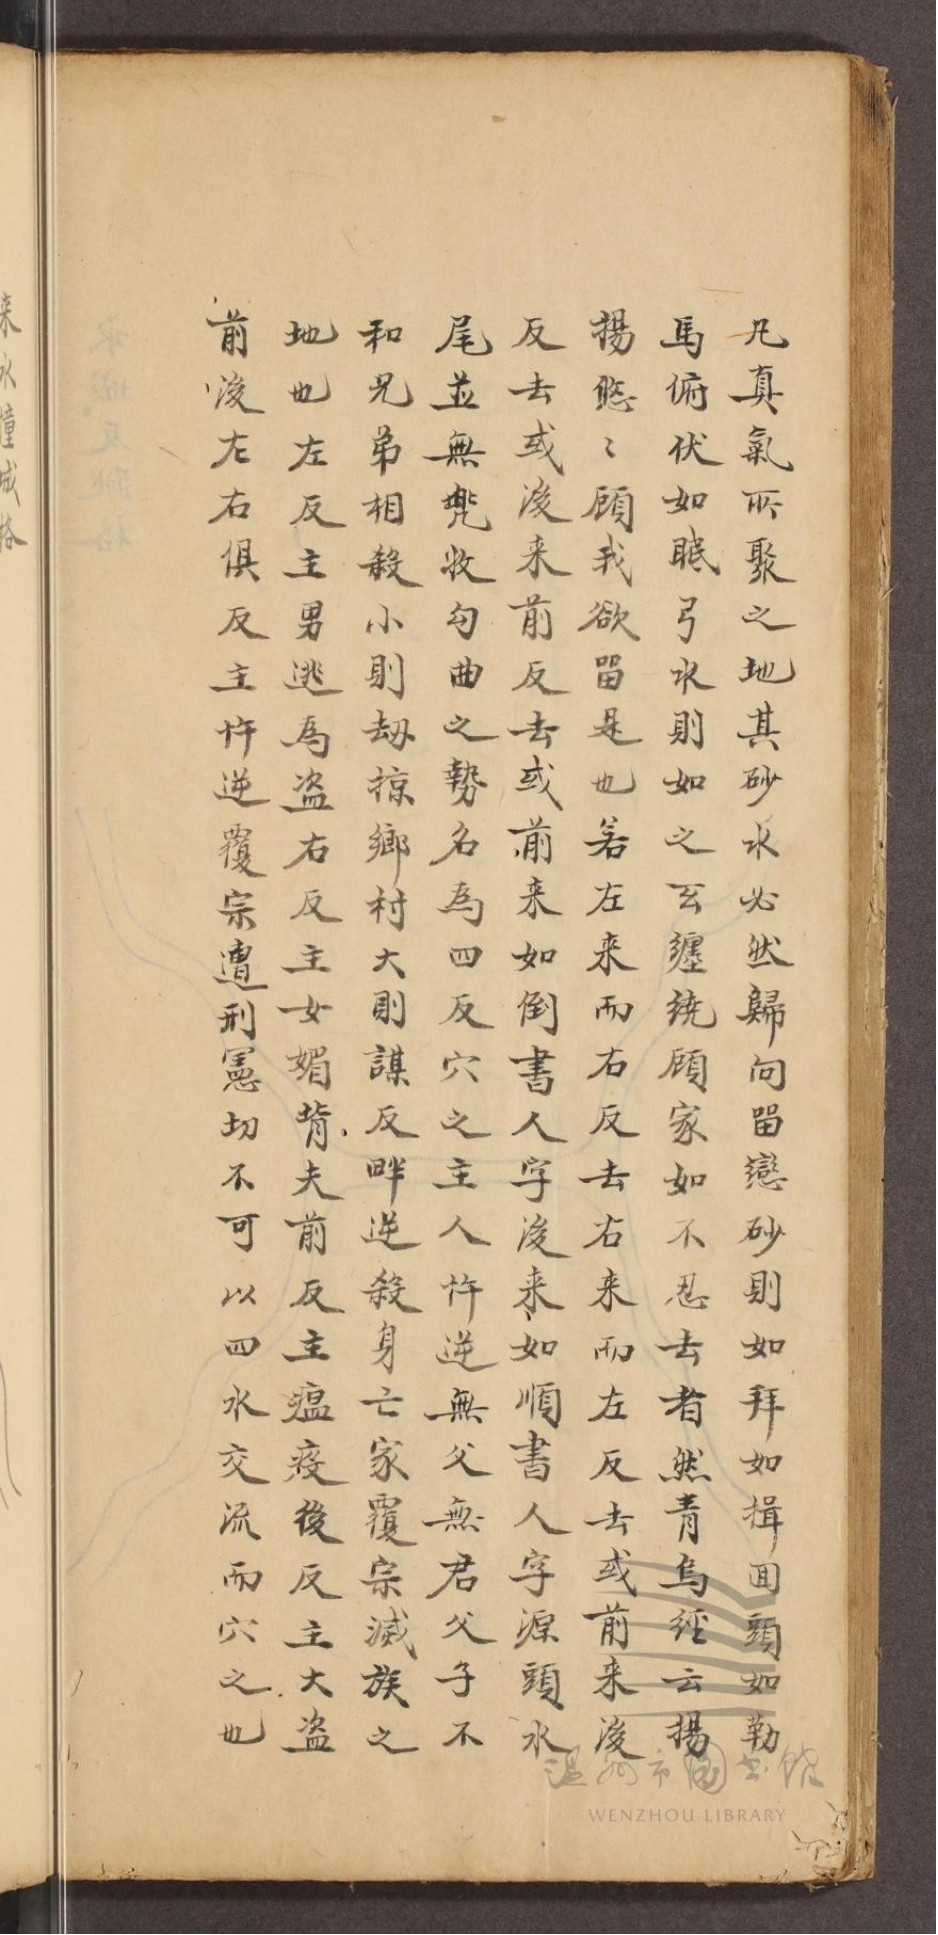 凡真氣所聚之地其砂水必然歸向畱戀砂則如拜如揖囬頭如勒
馬俯伏如眠弓水則如之玄纏繞顧家如不忍去者然青烏經云揚
揚悠〻顧我欲畱是也若左来而右反去右来而左反去或前来後
反去或後来前反去或前来如倒書人字後来如順書人字源頭水
尾並無兠收勾曲之勢名為四反穴之主人忤逆無父無君父子不
和兄弟相殺小則劫掠鄉村大則謀反畔逆殺身亡家覆宗滅族之
地也左反主男逃為盗右反主女媚背夫前反主瘟疫後反主大盗
前後左右俱反主忤逆覆宗遭刑憲切不可以四水交流而穴之也
来水撞城格
水城反跳格
温州市图书馆
WENZHOU LIBRARY